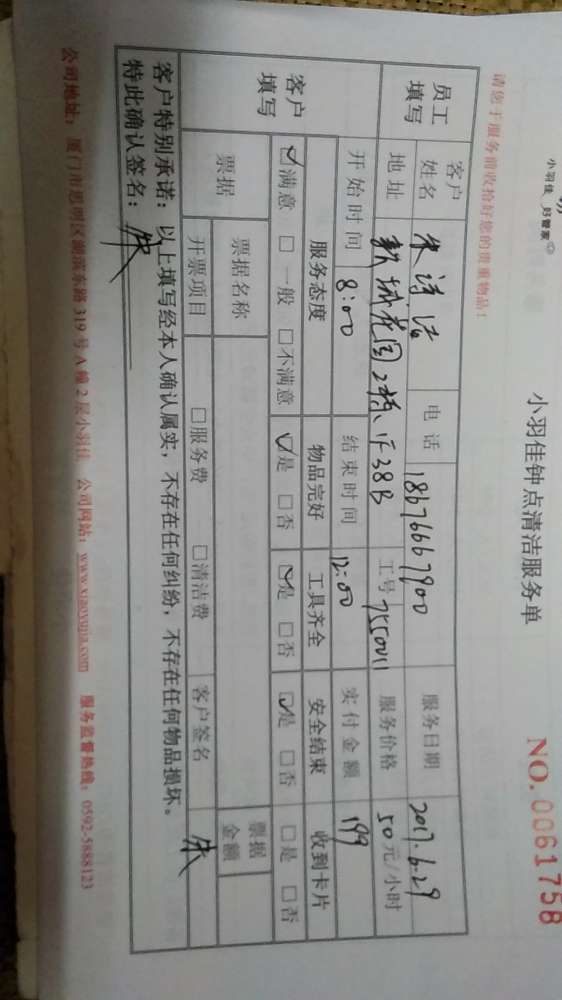 小羽佳 好管家
小羽佳钟点清洁服务单
NO. 0061758
请您于服务前收拾好您的贵重物品!
员工填写 客户姓名 朱诗洁 电话 18676667900 服务日期 2017.6.29
地址 城花园2栋 38B 工号 7550011 服务价格 50元/小时
开始时间 8:00 结束时间 12:00 实付金额 199
客户填写 服务态度 物品完好 工具齐全 安全结束 收到卡片
☑满意 □一般 □不满意 ☑是 □否 ☑是 □否 ☑是 □否 □是 □否
票据 票据名称 票据金额
开票项目 □服务费 □清洁费 客户签名 朱
客户特别承诺:以上填写经本人确认属实,不存在任何纠纷,不存在任何物品损坏。
特此确认签名:朱
公司地址:厦门市思明区湖滨东路319号A幢2层小羽佳 公司网站:www.xiaoyujia.com 服务监督热线:0592-5888123